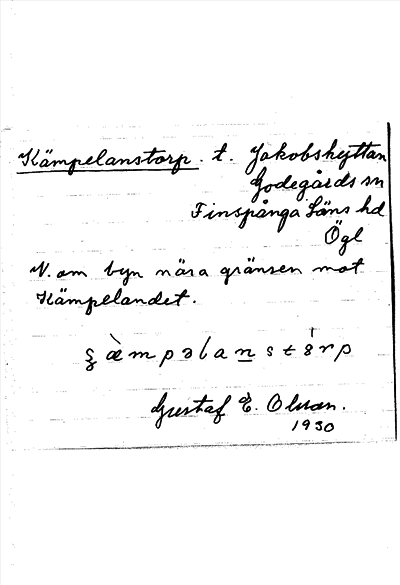 Kämpelanstorp. t. Jakobshyttan
Godegårds sn
Finspånga läns hd
Ögl
N. om byn nära gränsen mot
Kämpelandet.
Gustaf E. Olsson.
1930